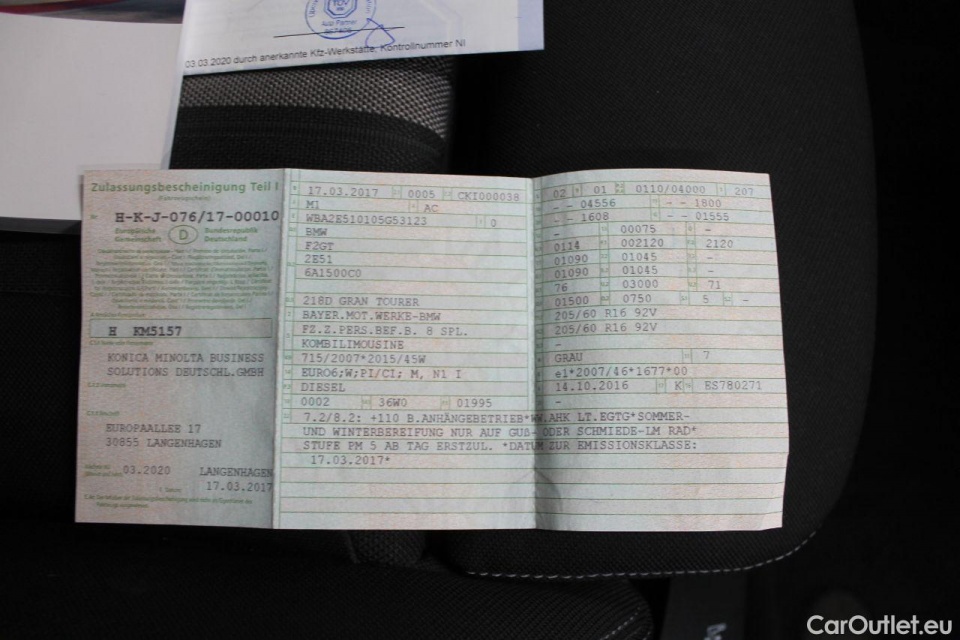 TÜV
03.03.2020 durch anerkannte Kfz-Werkstätte, Kontrollnummer NI
Zulassungsbescheinigung Teil I
(Fahrzeugschein)
Nr. H-K-J-076/17-00010
Europäische Gemeinschaft
D
Bundesrepublik Deutschland
H KM5157
KONICA MINOLTA BUSINESS
SOLUTIONS DEUTSCHL.GMBH
EUROPAALLEE 17
30855 LANGENHAGEN
03.2020 LANGENHAGEN
17.03.2017
17.03.2017 0005 CKI000038
M1 AC
WBA2E510105G53123 0
BMW
F2GT
2E51
6A1500C0
218D GRAN TOURER
BAYER.MOT.WERKE-BMW
FZ.Z.PERS.BEF.B. 8 SPL.
KOMBILIMOUSINE
715/2007*2015/45W
EURO6;W;PI/CI; M, N1 I
DIESEL
0002 36W0 01995
7.2/8.2: +110 B.ANHÄNGEBETRIEB*WW.AHK LT.EGTG*SOMMER-
UND WINTERBEREIFUNG NUR AUF GUß- ODER SCHMIEDE-LM RAD*
STUFE PM 5 AB TAG ERSTZUL. *DATUM ZUR EMISSIONSKLASSE:
17.03.2017*
02 01 0110/04000 207
- - 04556 - - 1800
- - 1608 - - 01555
- 00075 -
0114 002120 2120
01090 01045 -
01090 01045 -
76 03000 71
01500 0750 5 -
205/60 R16 92V
205/60 R16 92V
-
GRAU 7
e1*2007/46*1677*00
14.10.2016 K ES780271
-
CarOutlet.eu